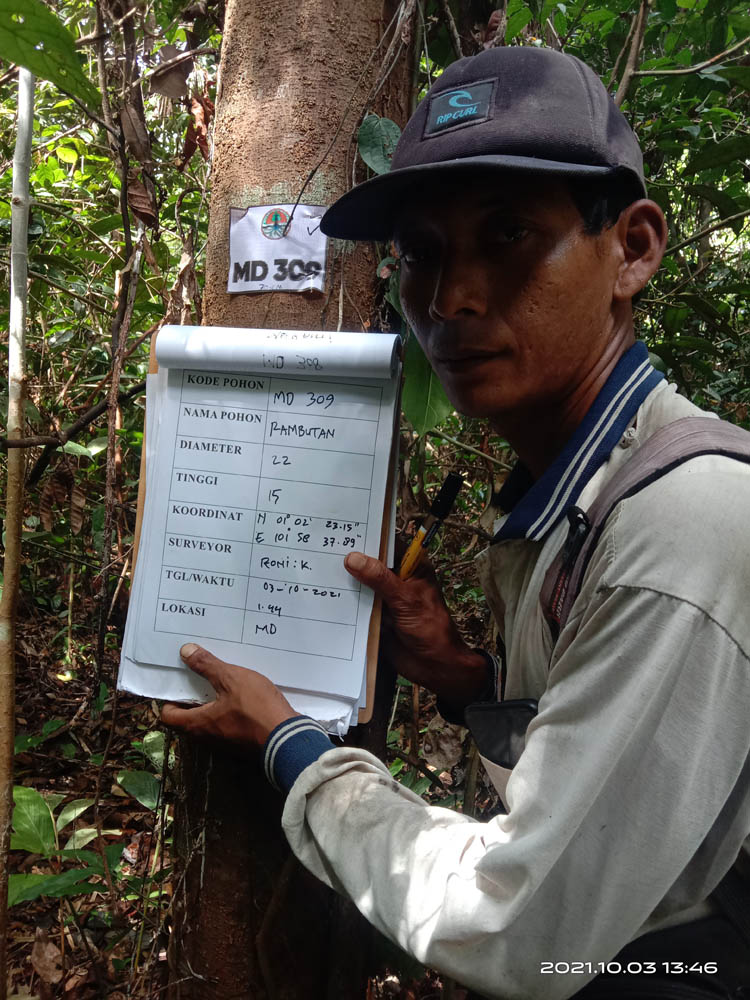 RIP CURL
MD 309
MD 308
KODE POHON MD 309
NAMA POHON RAMBUTAN
DIAMETER 22
TINGGI 15
KOORDINAT N 01° 02' 23.15"
E 101° 58 37.89"
SURVEYOR RONI : K.
TGL/WAKTU 03-10-2021
1.44
LOKASI MD
2021.10.03 13:46